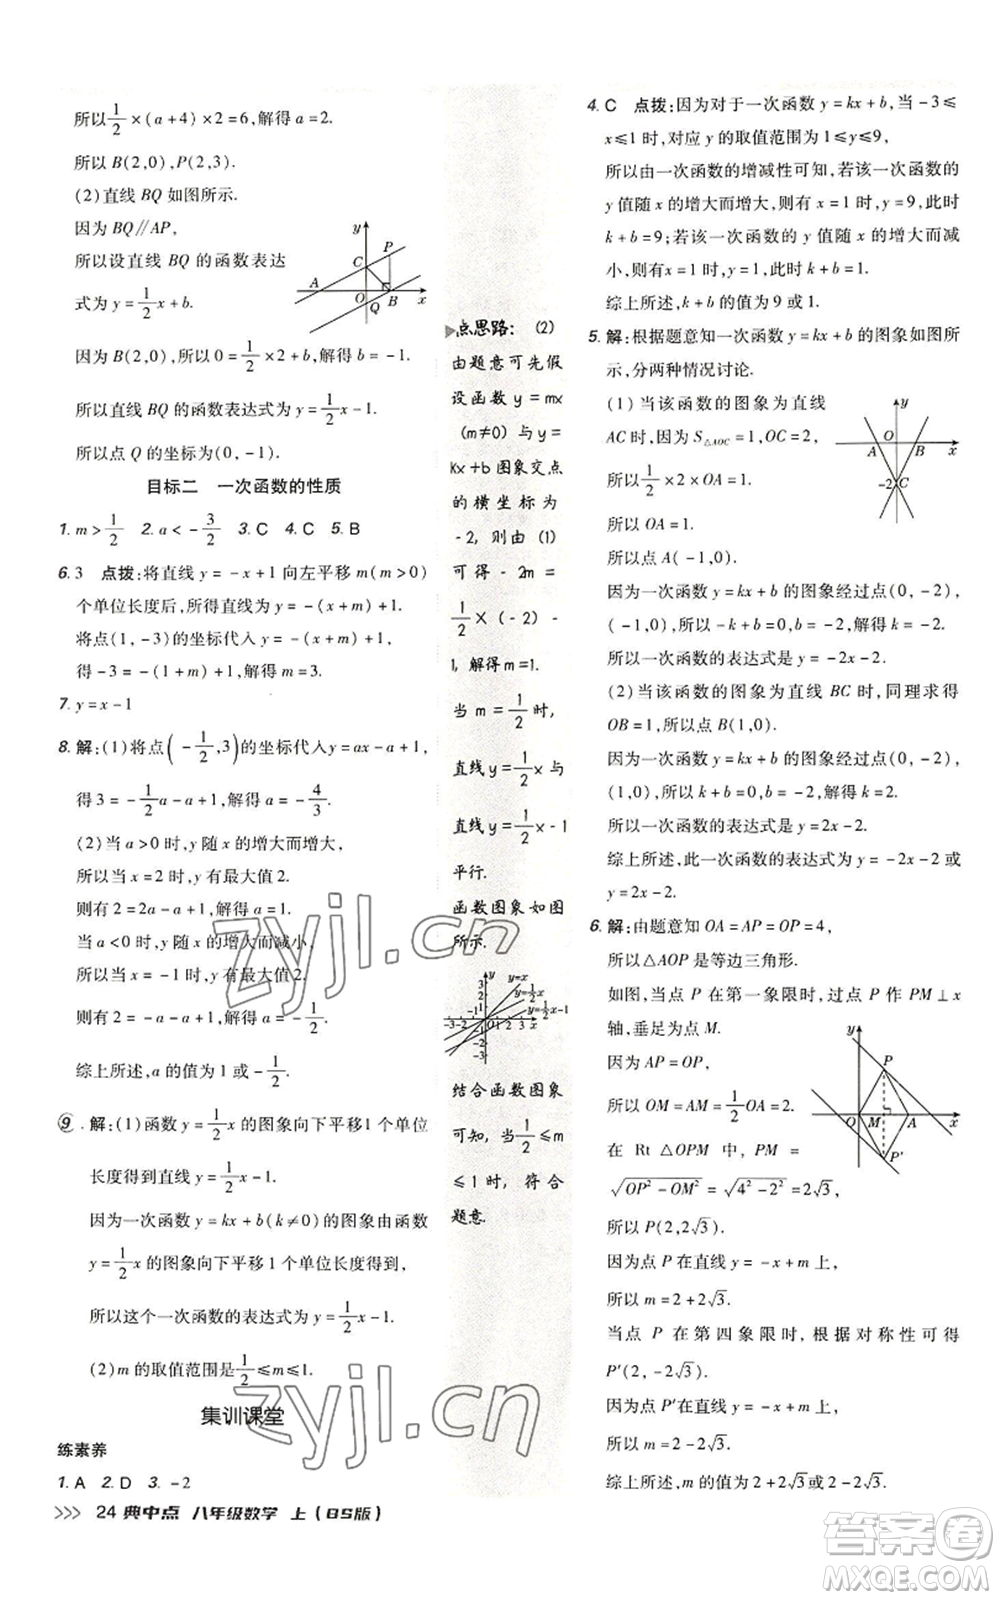 所以1/2×(a+4)×2=6,解得a=2.
所以B(2,0),P(2,3).
(2)直线BQ如图所示.
因为BQ∥AP,
所以设直线BQ的函数表达
式为y=1/2x+b.
因为B(2,0),所以0=1/2×2+b,解得b=-1.
所以直线BQ的函数表达式为y=1/2x-1.
所以点Q的坐标为(0,-1).
y
C
P
A
O
B
Q
x
目标二 一次函数的性质
1.m>1/2 2.a<-3/2 3.C 4.C 5.B
6.3 点拨:将直线y=-x+1向左平移m(m>0)
个单位长度后,所得直线为y=-(x+m)+1.
将点(1,-3)的坐标代入y=-(x+m)+1,
得-3=-(1+m)+1,解得m=3.
7.y=x-1
8.解:(1)将点(-1/2,3)的坐标代入y=ax-a+1,
得3=-1/2a-a+1,解得a=-4/3.
(2)当a>0时,y随x的增大而增大,
所以当x=2时,y有最大值2.
则有2=2a-a+1,解得a=1.
当a<0时,y随x的增大而减小,
所以当x=-1时,y有最大值2.
则有2=-a-a+1,解得a=-1/2.
综上所述,a的值为1或-1/2.
9.解:(1)函数y=1/2x的图象向下平移1个单位
长度得到直线y=1/2x-1.
因为一次函数y=kx+b(k≠0)的图象由函数
y=1/2x的图象向下平移1个单位长度得到,
所以这个一次函数的表达式为y=1/2x-1.
(2)m的取值范围是1/2≤m≤1.
集训课堂
练素养
1.A 2.D 3.-2
>>> 24 典中点 八年级数学 上(BS版)
点思路:(2)
由题意可先假
设函数y=mx
(m≠0)与y=
kx+b图象交点
的横坐标为
-2,则由(1)
可得-2m=
1/2×(-2)-
1,解得m=1.
当m=1/2时,
直线y=1/2x与
直线y=1/2x-1
平行.
函数图象如图
所示.
y y=x
y=1/2x
y=1/2x-1
3
2
1
-3-2-1 O 1 2 3 x
-1
-2
-3
结合函数图象
可知,当1/2≤m
≤1时,符合
题意.
4.C 点拨:因为对于一次函数y=kx+b,当-3≤
x≤1时,对应y的取值范围为1≤y≤9,
所以由一次函数的增减性可知,若该一次函数的
y值随x的增大而增大,则有x=1时,y=9,
k+b=9;若该一次函数的y值随x的增大而减
小,则有x=1时,y=1,k+b=1.
综上所述,k+b的值为9或1.
5.解:根据题意知一次函数y=kx+b的图象如图所
示,分两种情况讨论.
(1)当该函数的图象为直线
AC时,因为S△AOC=1,OC=2,
所以1/2×2×OA=1.
所以OA=1.
所以点A(-1,0).
y
O
A
B
x
-2
C
因为一次函数y=kx+b的图象经过点(0,-2),
(-1,0),所以-k+b=0,b=-2,解得k=-2.
所以一次函数的表达式是y=-2x-2.
(2)当该函数的图象为直线BC时,同理求得
OB=1,所以点B(1,0).
因为一次函数y=kx+b的图象经过点(0,-2),
(1,0),所以k+b=0,b=-2,解得k=2.
所以一次函数的表达式是y=2x-2.
综上所述,此一次函数的表达式为y=-2x-2或
y=2x-2.
6.解:由题意知OA=AP=OP=4,
所以△AOP是等边三角形.
如图,当点P在第一象限时,过点P作PM⊥x
轴,垂足为点M.
因为AP=OP,
所以OM=AM=1/2OA=2.
在Rt△OPM中,PM=
√(OP²-OM²)=√(4²-2²)=2√3,
所以P(2,2√3).
y
P
O
M
A
x
P'
因为点P在直线y=-x+m上,
所以m=2+2√3.
当点P在第四象限时,根据对称性可得
P'(2,-2√3).
因为点P'在直线y=-x+m上,
所以m=2-2√3.
综上所述,m的值为2+2√3或2-2√3.
zyjl.cn
zyjl.cn
答案圈
MXQE.COM